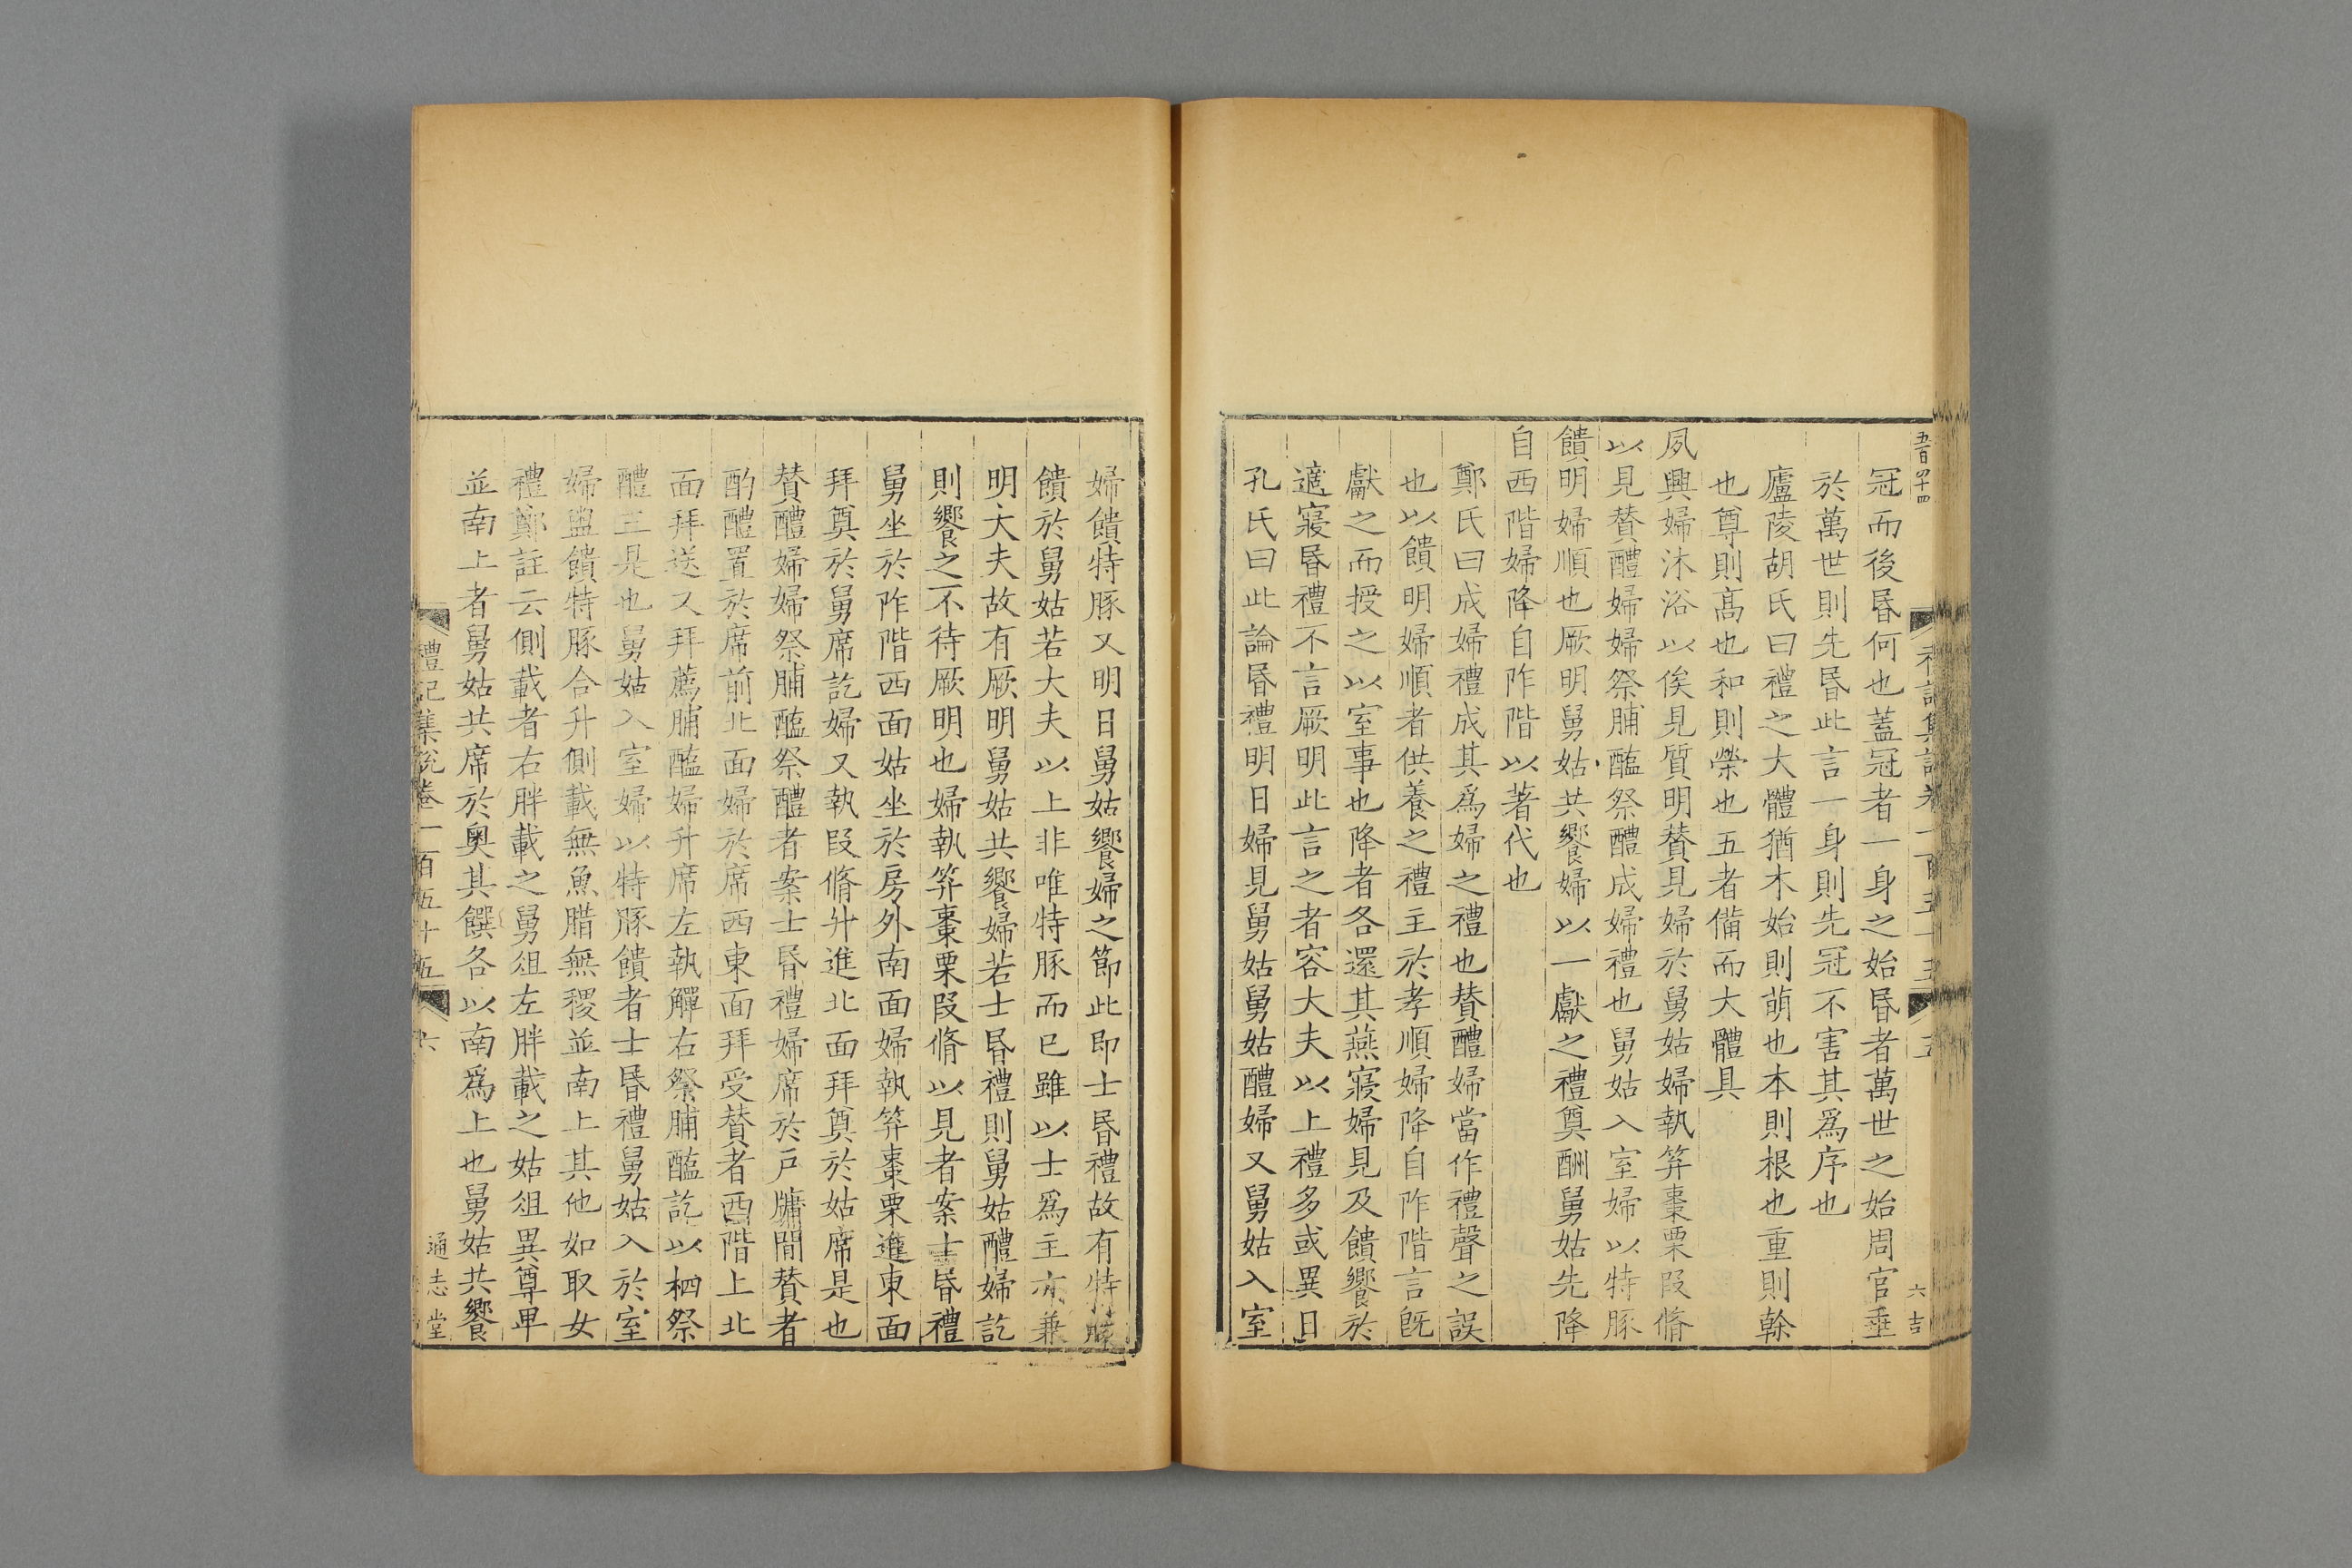 五百四十四
六吉
冠而後昬何也蓋冠者一身之始昬者萬世之始周官垂
於萬世則先昬此言一身則先冠不害其爲序也
廬陵胡氏曰禮之大體猶木始則萌也本則根也重則榦
也尊則髙也和則榮也五者備而大體具
夙興婦沐浴以俟見質明賛見婦於舅姑婦執笄棗栗段脩
以見賛醴婦婦祭脯醢祭醴成婦禮也舅姑入室婦以特豚
饋明婦順也厥明舅姑共饗婦以一獻之禮奠酬舅姑先降
自西階婦降自阼階以著代也
鄭氏曰成婦禮成其爲婦之禮也賛醴婦當作禮聲之誤
也以饋明婦順者供養之禮主於孝順婦降自阼階言旣
獻之而授之以室事也降者各還其燕寢婦見及饋饗於
適寢昬禮不言厥明此言之者容大夫以上禮多或異日
孔氏曰此論昬禮明日婦見舅姑舅姑醴婦又舅姑入室
婦饋特豚又明日舅姑饗婦之節此即士昬禮故有特豚
饋於舅姑若大夫以上非唯特豚而已雖以士爲主亦兼
明大夫故有厥明舅姑共饗婦若士昬禮則舅姑醴婦訖
則饗之不待厥明也婦執笄棗栗段脩以見者案士昬禮
舅坐於阼階西面姑坐於房外南面婦執笄棗栗進東面
拜奠於舅席訖婦又執段脩升進北面拜奠於姑席是也
賛醴婦婦祭脯醢祭醴者案士昬禮婦席於戶牖間賛者
酌醴置於席前北面婦於席西東面拜受賛者西階上北
面拜送又拜薦脯醢婦升席左執觶右祭脯醢訖以柶祭
醴三是也舅姑入室婦以特豚饋者士昬禮舅姑入於室
婦盥饋特豚合升側載無魚腊無稷並南上其他如取女
禮鄭註云側載者右胖載之舅俎左胖載之姑俎異尊卑
並南上者舅姑共席於奥其饌各以南爲上也舅姑共饗
禮記集說卷一百五十五
六
通志堂